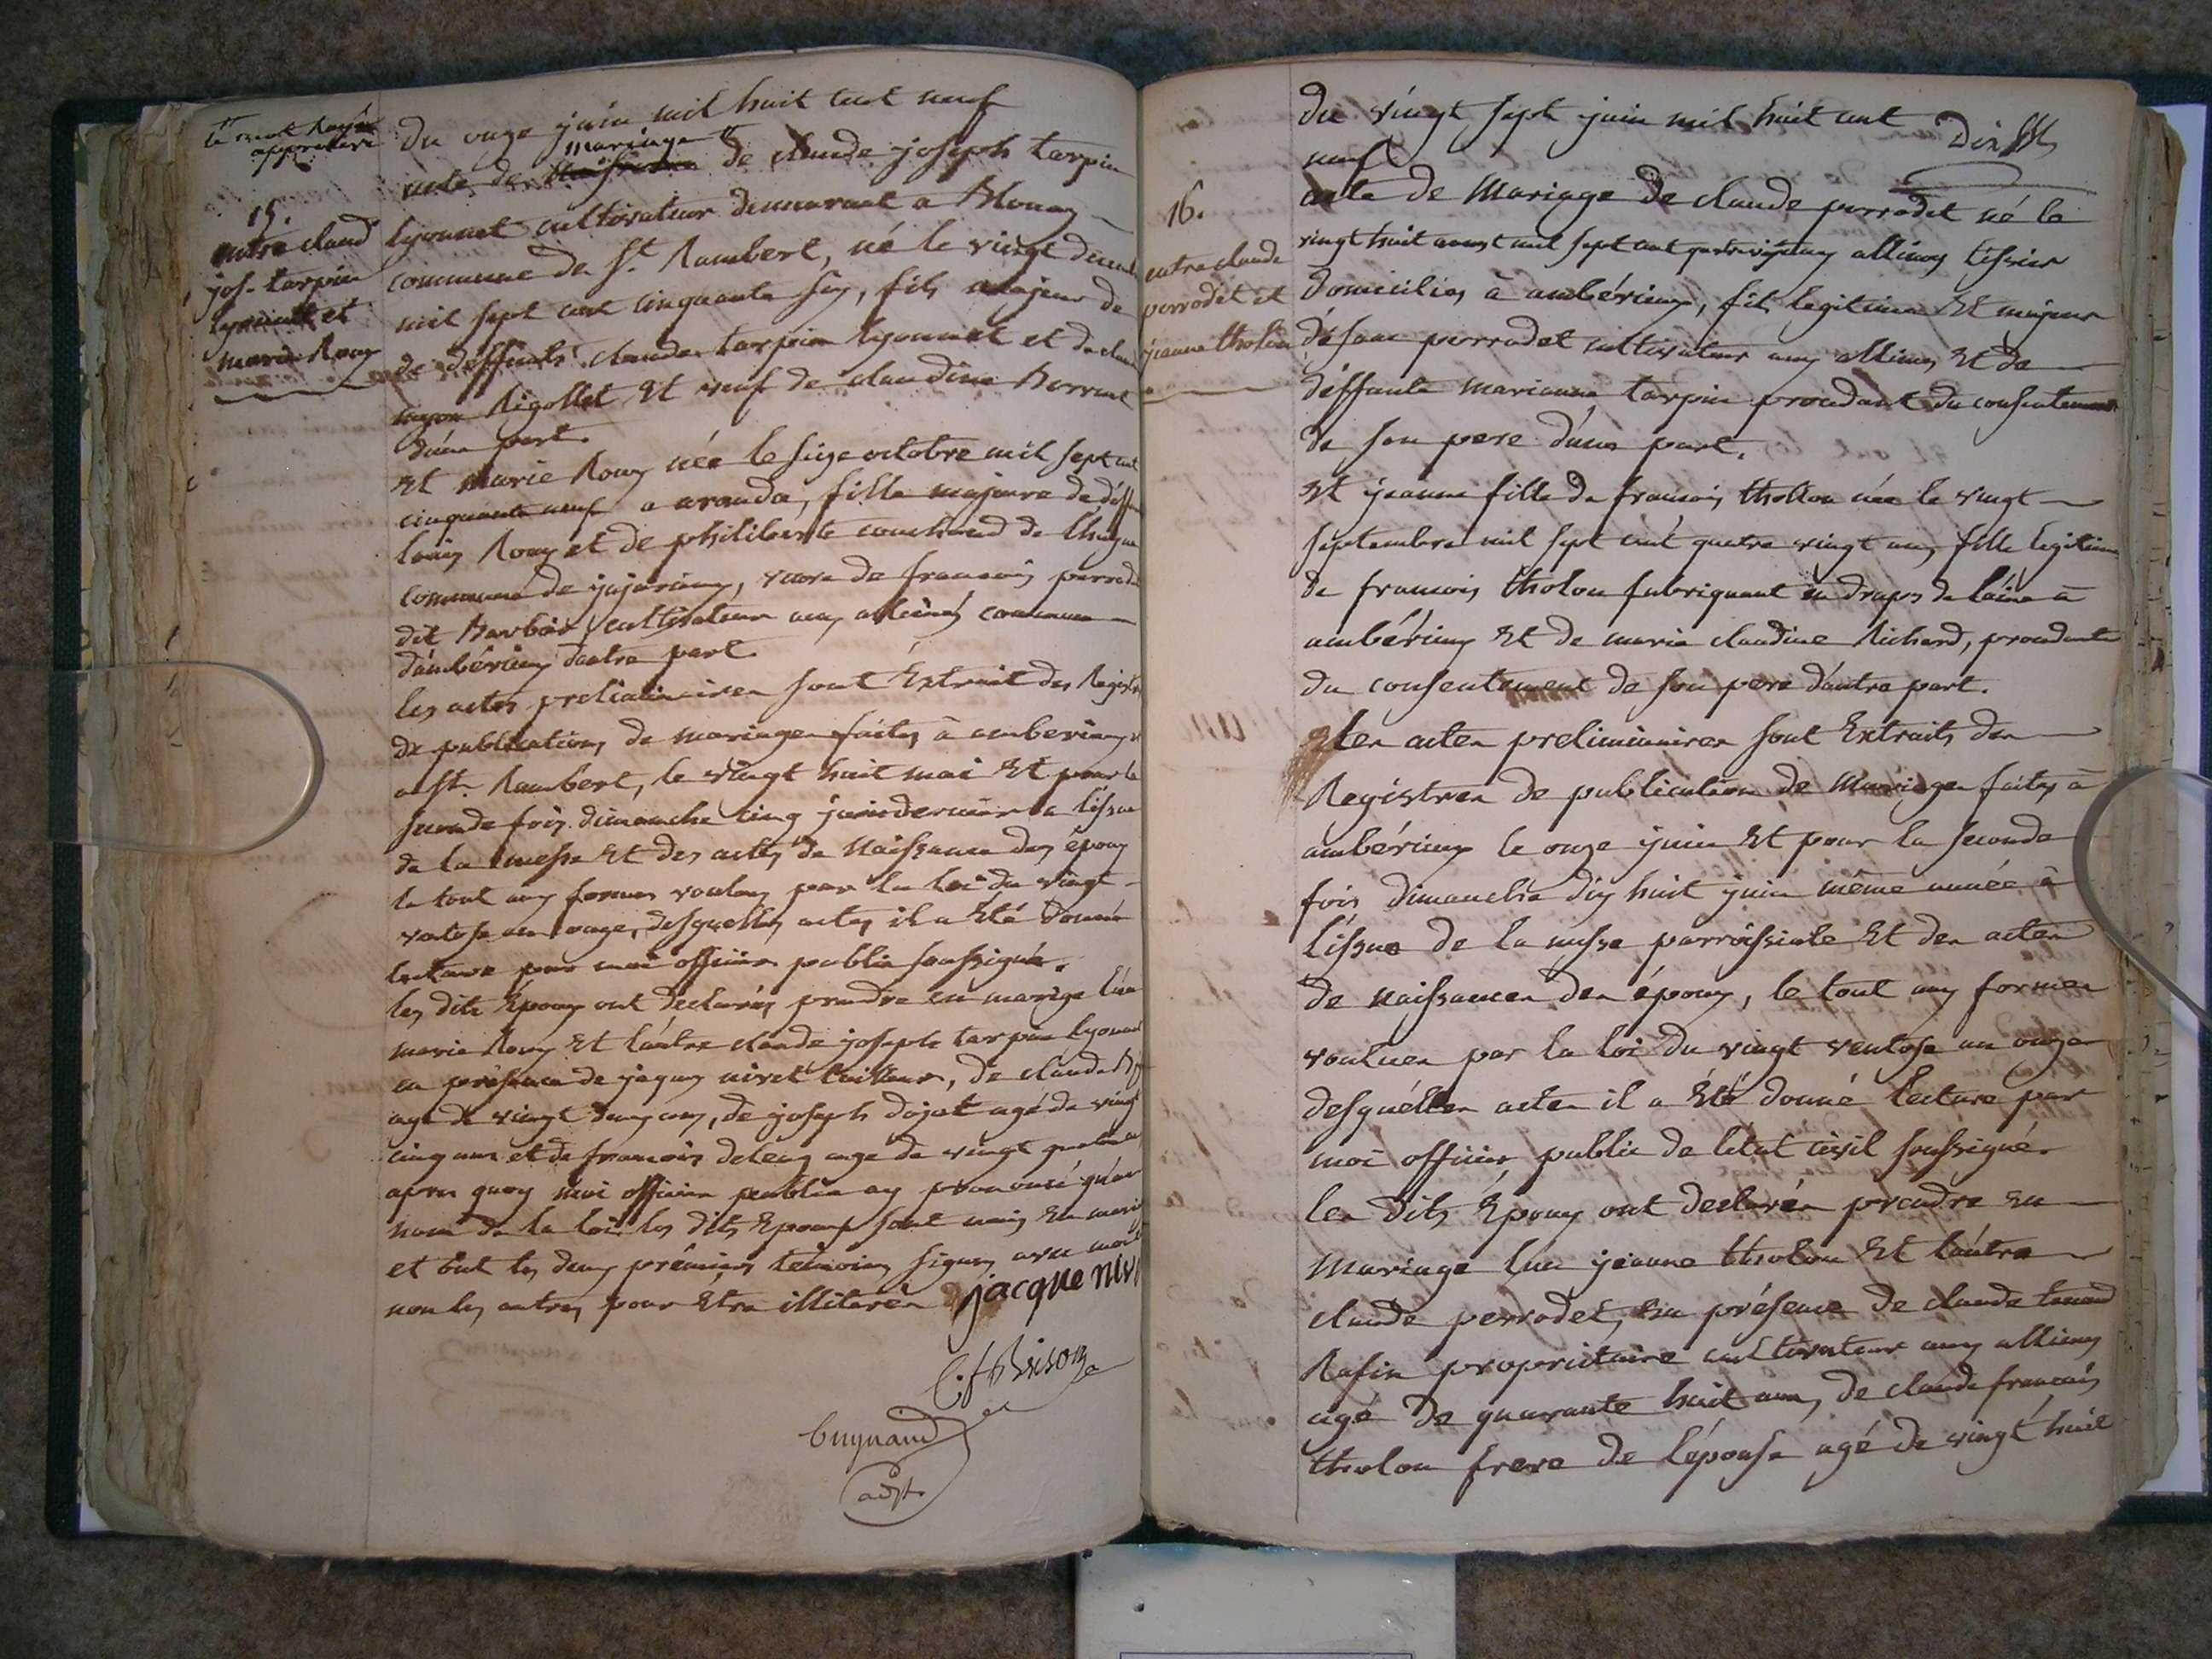 le mot Rayé
approuvé
15.
entre claud
jos. tarpin
lyonnet et
marie Roux
du onze juin mil huit cent neuf
mariage
acte de de claude joseph tarpin
lyonnet cultivateur demeurant a Blanay
commune de St. Rambert, né le vingt decemb
mil sept cent cinquante six, fils majeur de
de deffunts claude tarpin lyonnet et de claud
Rigollet Et veuf de claudine Barrut
d'une part.
Et Marie Roux née le seize octobre mil sept cent
cinquante neuf a aranda, fille majeure de deff
louis Roux et de philiberte couchoud de
commune de jujurieux, veuve de francois perrodet
dit Barbier, cultivateur aux allimes commune
d'ambérieux d'autre part.
les actes preliminaires sont Extrait des Registre
de publications de mariages faites à amberieux
a St. Rambert, le vingt huit mai Et pour la
seconde fois dimanche cinq juin dernier a l'issue
de la messe Et des actes de Naissance des époux
le tout aux formes voulues par la loi du vingt
ventose an onze, desquelles actes il a Eté donné
lecture par moi officier public soussigné.
les dits Epoux ont declarés prendre en mariage l'une
marie Roux Et l'autre claude joseph tarpin lyonnet
en présence de jaques nivet tailleur, de claude
agé de vingt deux ans, de joseph dojat agé de vingt
cinq ans et de francois deleaz agé de vingt quatre
apres quoy moi officier public ay prononcé qu'au
nom de la loi les dits Epoux sont unis En maria
et ont les deux prémiers temoins signés avec moi
non les autres pour Etre illitérés jacque niv
C. f Brison
Cuynaud
adjt.
du vingt sept juin mil huit cent
neuf
Dix
16.
entre claude
perrodet et
jeanne tholon
acte de Mariage de claude perrodet né le
vingt huit aoust mil sept cent quatre vingt allimes tissier
Domicilié à ambérieux, fils legitime Et majeur
de perrodet cultivateur aux allimes Et de
déffunte marianne tarpin procedant du consentement
de son pere d'une part.
Et jeanne fille de francois tholon née le vingt
septembre mil sept cent quatre vingt fille legitime
de francois tholon fabriquant en draps de laine à
ambérieux Et de marie claudine Richard, procedante
du consentement de son pere d'autre part.
les actes preliminaires sont Extraits des
Registres de publication de Mariages faites à
ambérieux le onze juin Et pour la seconde
fois dimanche dix huit juin même année à
l'issue de la messe parroissiale Et des actes
de naissances des époux, le tout aux formes
voulues par la loi du vingt ventose an onze
desquélles actes il a Eté donné lecture par
moi officier public de l'etat civil soussigné.
les dits Epoux ont declarés prendre en
Mariage l'un jeanne tholon Et l'autre
claude perrodet, En présence de claude tenand
Rafin propriétaire cultivateur aux allimes
agé de quarante huit ans, de claude francois
tholon frere de l'épouse agé de vingt huit